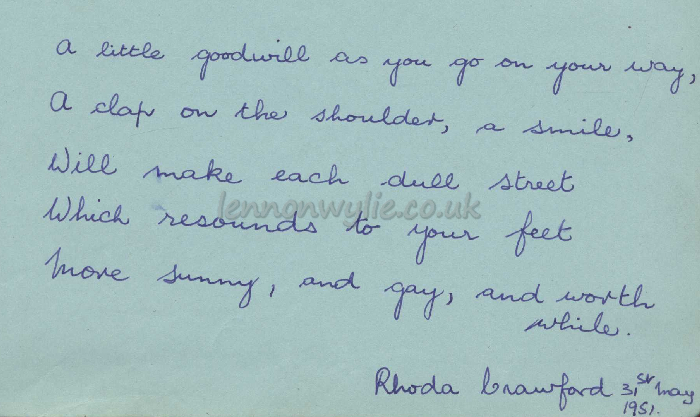 A little goodwill as you go on your way,
A clap on the shoulder, a smile,
Will make each dull street
lennonwylie.co.uk
Which resounds to your feet
More sunny, and gay, and worth
while.
Rhoda Crawford 31st May
1951.